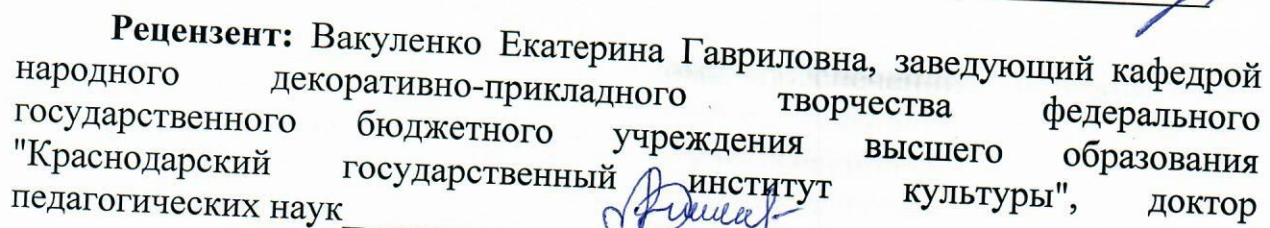 Рецензент: Вакуленко Екатерина Гавриловна, заведующий кафедрой
народного декоративно-прикладного творчества федерального
государственного бюджетного учреждения высшего образования
"Краснодарский государственный институт культуры", доктор
педагогических наук